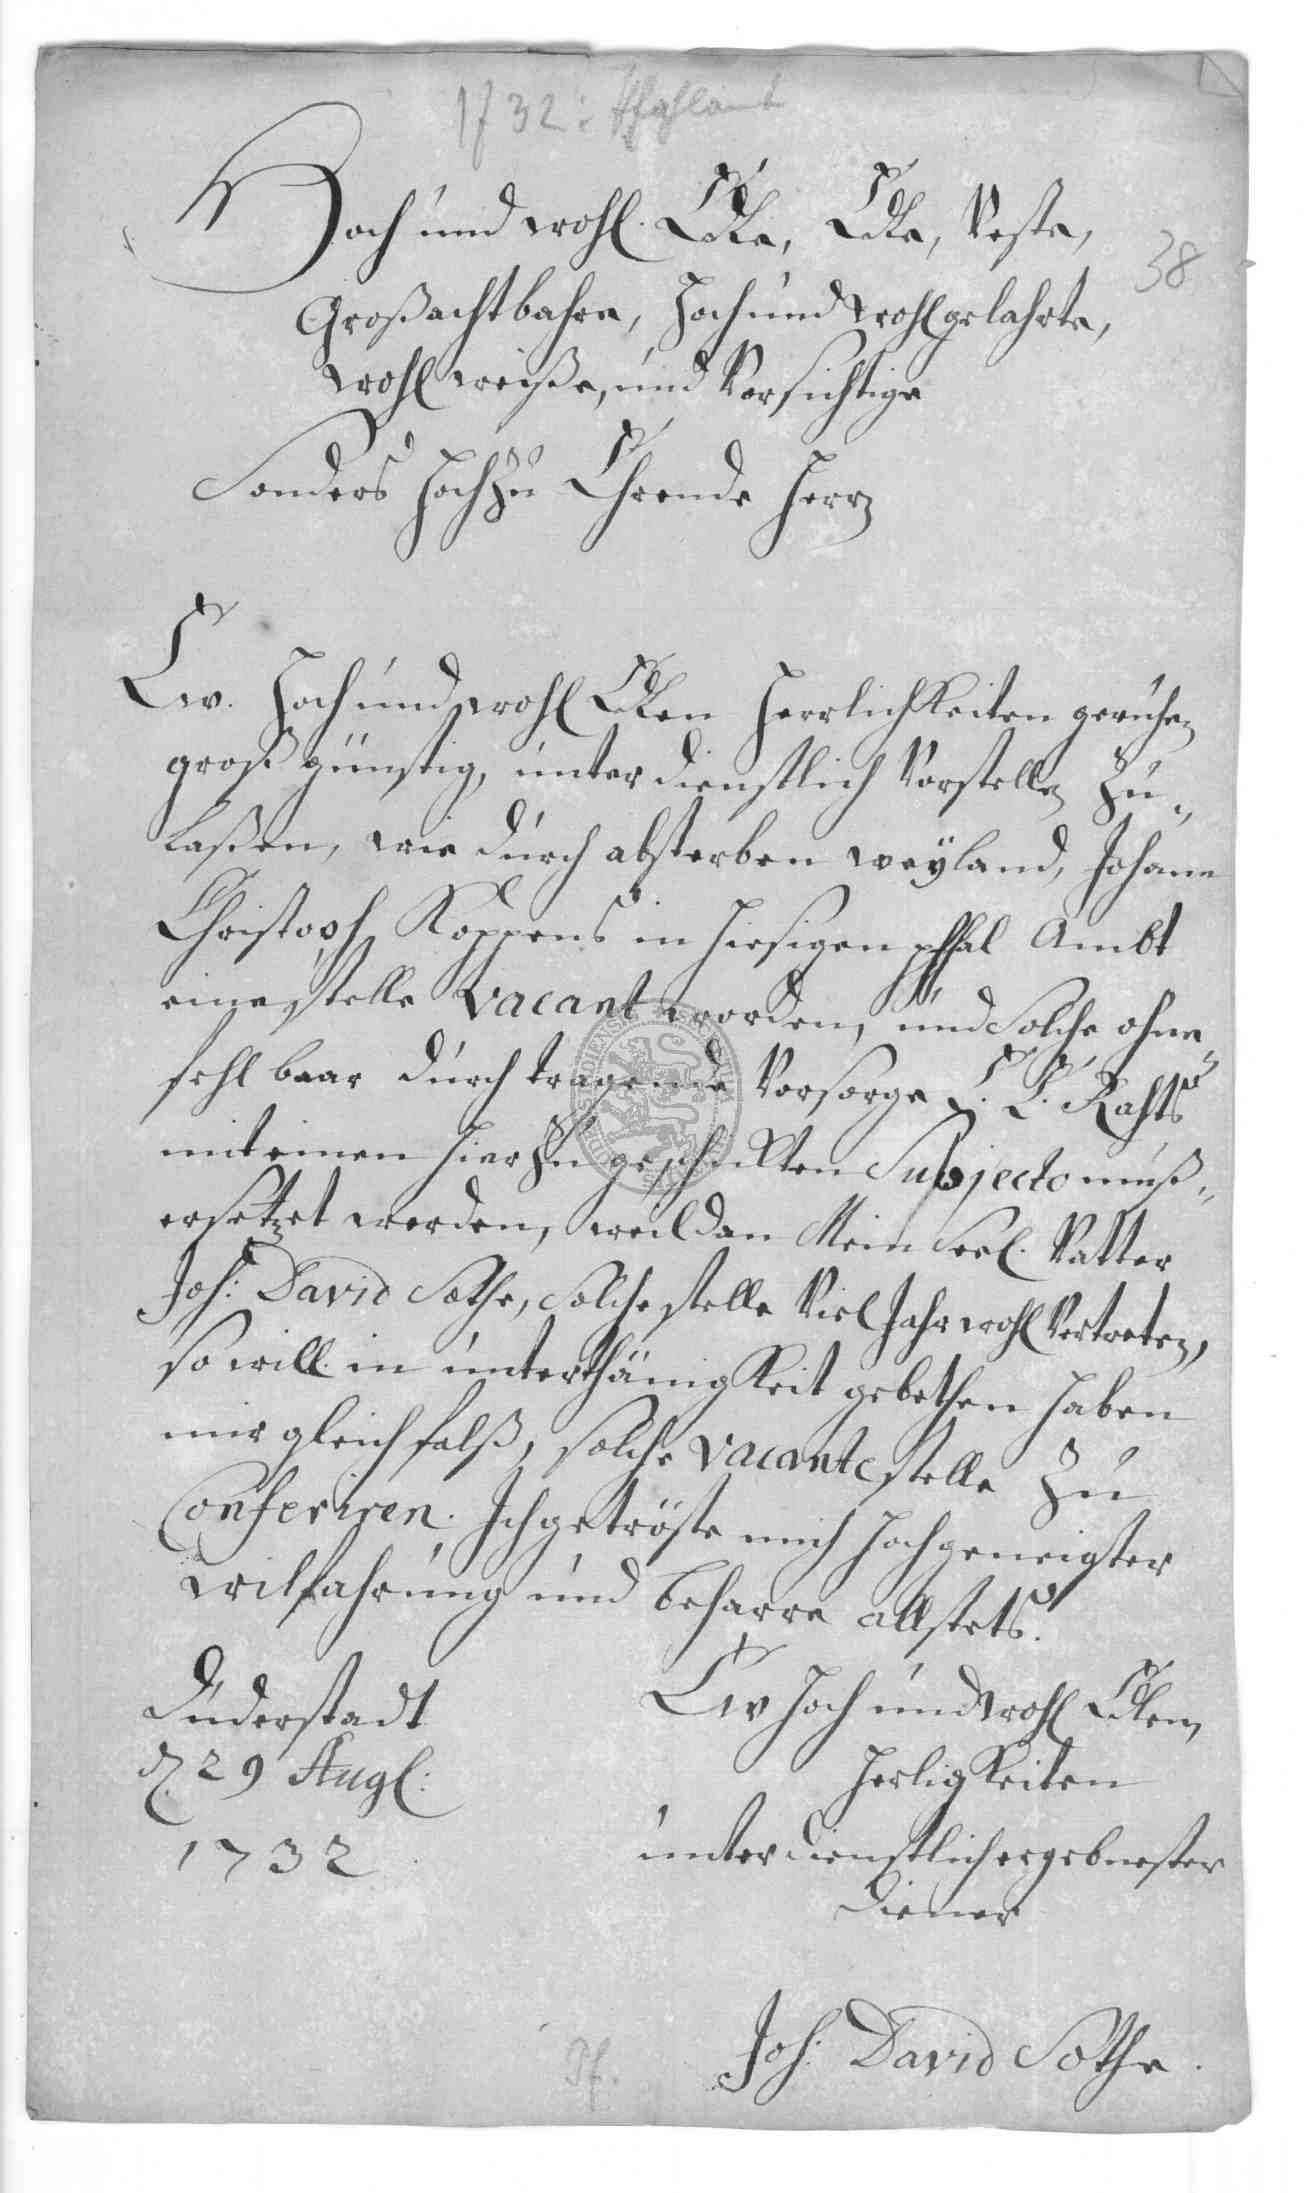 1732: Pfahlamt
38
Hoch und wohl. Edle, Edle, Veste,
Großachtbahre, Hoch und wohlgelahrte,
wohl weiße, und Vorsichtige
Sonders Hochzu Ehrende Herrn
Ew. Hoch und wohl Edlen Herrlichkeiten geruhen
groß günstig, unter dienstlich Vorstellen zu„
laßen, wie durch absterben weyland, Johann
Christoph Koppens in hiesigen pfhal Ambt
eine stelle vacant worden, und solche ohne„
fehl baar durch tragende Vorsorge E. E. Rahts
mit einen hierzu geschickten Subjecto muß„
ersetzet werden, weil dan Mein Seel. Vatter
Joh: David Sothe, solche stelle Viel Jahr wohl Vertreten,
so will in unterthänigkeit gebethen haben
mir gleichfalß, solche vacante stelle zu
Conferiren. Ich getröste mich hochgeneigter
wilfahrung und beharre allstets.
Duderstadt
d. 29 Aug:
1732
Ew Hoch und wohl Edlen
Herligkeiten
unterdienstlich ergebnester
Diener
Joh: David Sothe.
Pf.